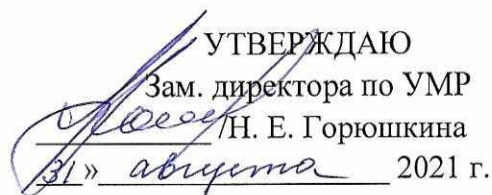 УТВЕРЖДАЮ
Зам. директора по УМР
/Н. Е. Горюшкина
31» августа 2021 г.